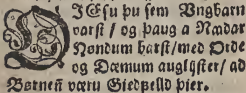 OJEsu þu sem Vngbarn
varst / og þaug a Nædar
Nøndum barst / med Orde
og Dæmum auglyster / ad
Børnen̄ væru Giedþelld þier.